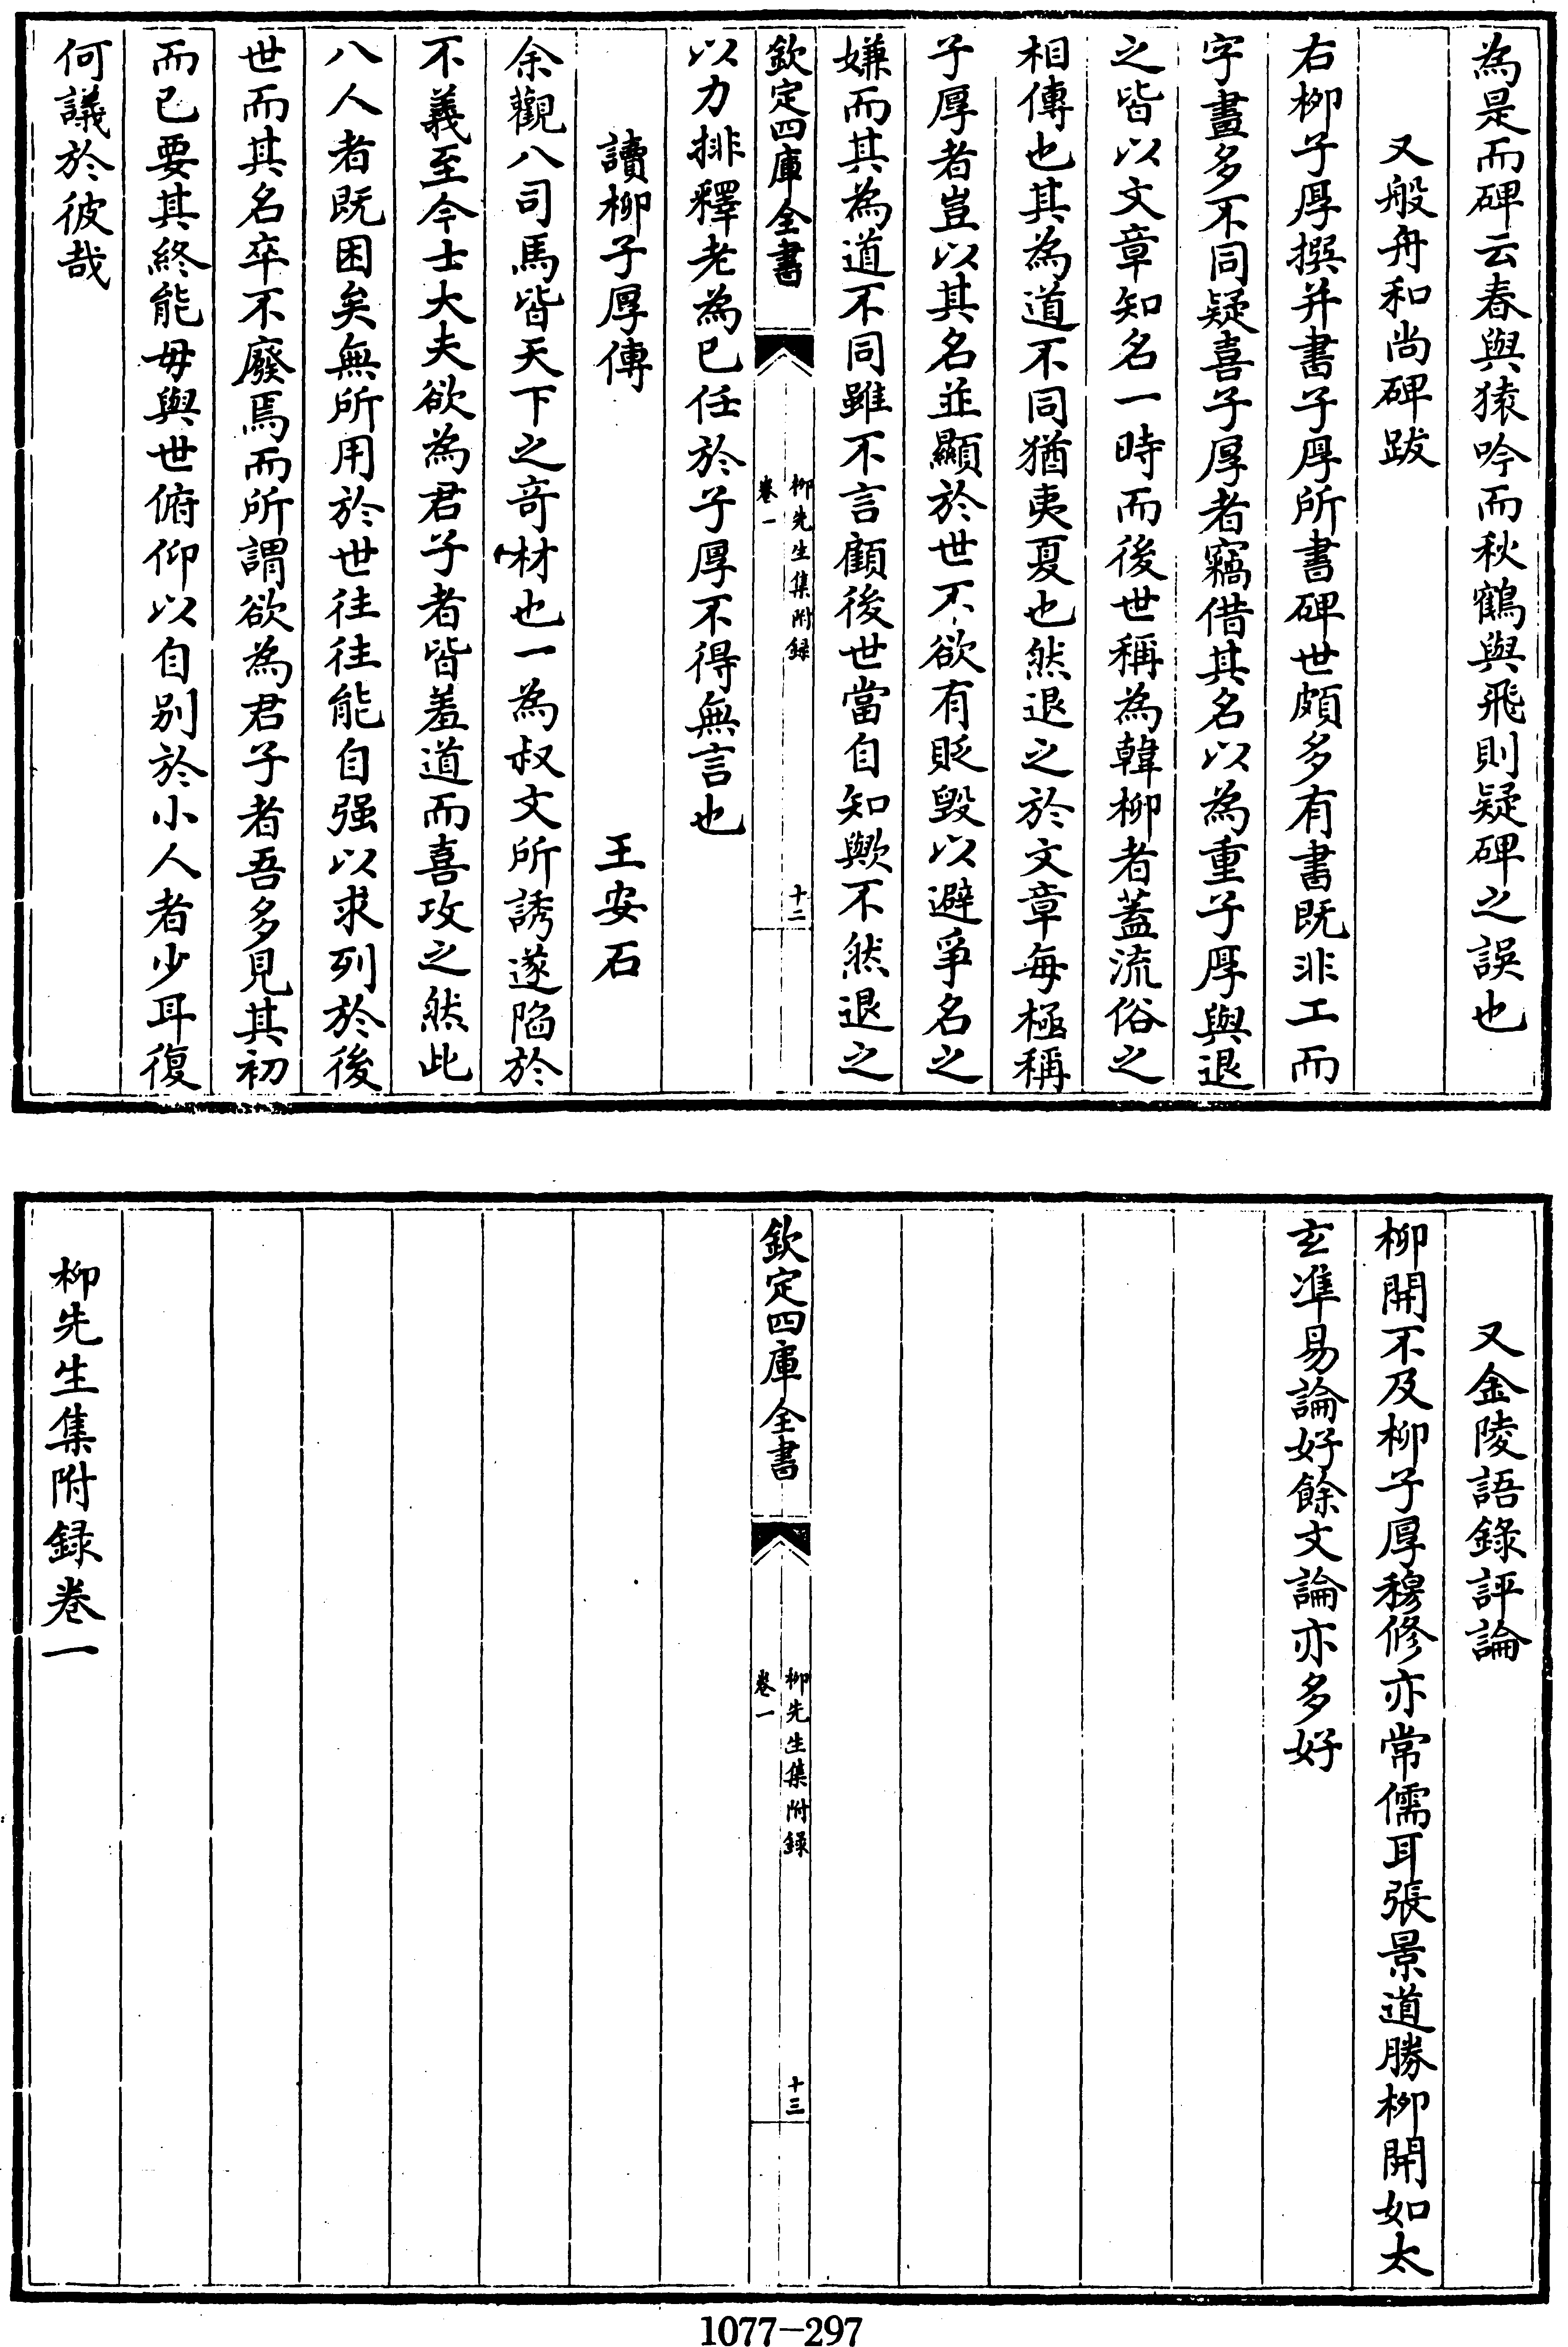 為是而碑云春與猿吟而秋鶴與飛則疑碑之誤也
又般舟和尚碑跋
右柳子厚撰并書子厚所書碑世頗多有書既非工而
字畫多不同疑喜子厚者竊借其名以為重子厚與退
之皆以文章知名一時而後世稱為韓柳者蓋流俗之
相傳也其為道不同猶夷夏也然退之於文章每極稱
子厚者豈以其名並顯於世不欲有貶毀以避爭名之
嫌而其為道不同雖不言顧後世當自知歟不然退之
欽定四庫全書
柳先生集附録
卷一
十二
以力排釋老為已任於子厚不得無言也
讀柳子厚傳
王安石
余觀八司馬皆天下之竒材也一為叔文所誘遂陷於
不義至今士大夫欲為君子者皆羞道而喜攻之然此
八人者既困矣無所用於世往往能自强以求列於後
世而其名卒不廢焉而所謂欲為君子者吾多見其初
而已要其終能毋與世俯仰以自别於小人者少耳復
何議於彼哉
又金陵語錄評論
柳開不及柳子厚穆修亦常儒耳張景道勝柳開如太
玄準易論好餘文論亦多好
欽定四庫全書
柳先生集附録
卷一
十三
柳先生集附録卷一
1077-297